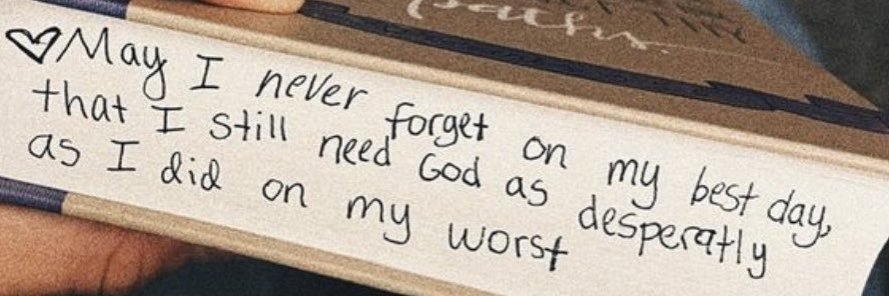 ♡May I never forget on my best day,
that I still need God as desperatly
as I did on my worst